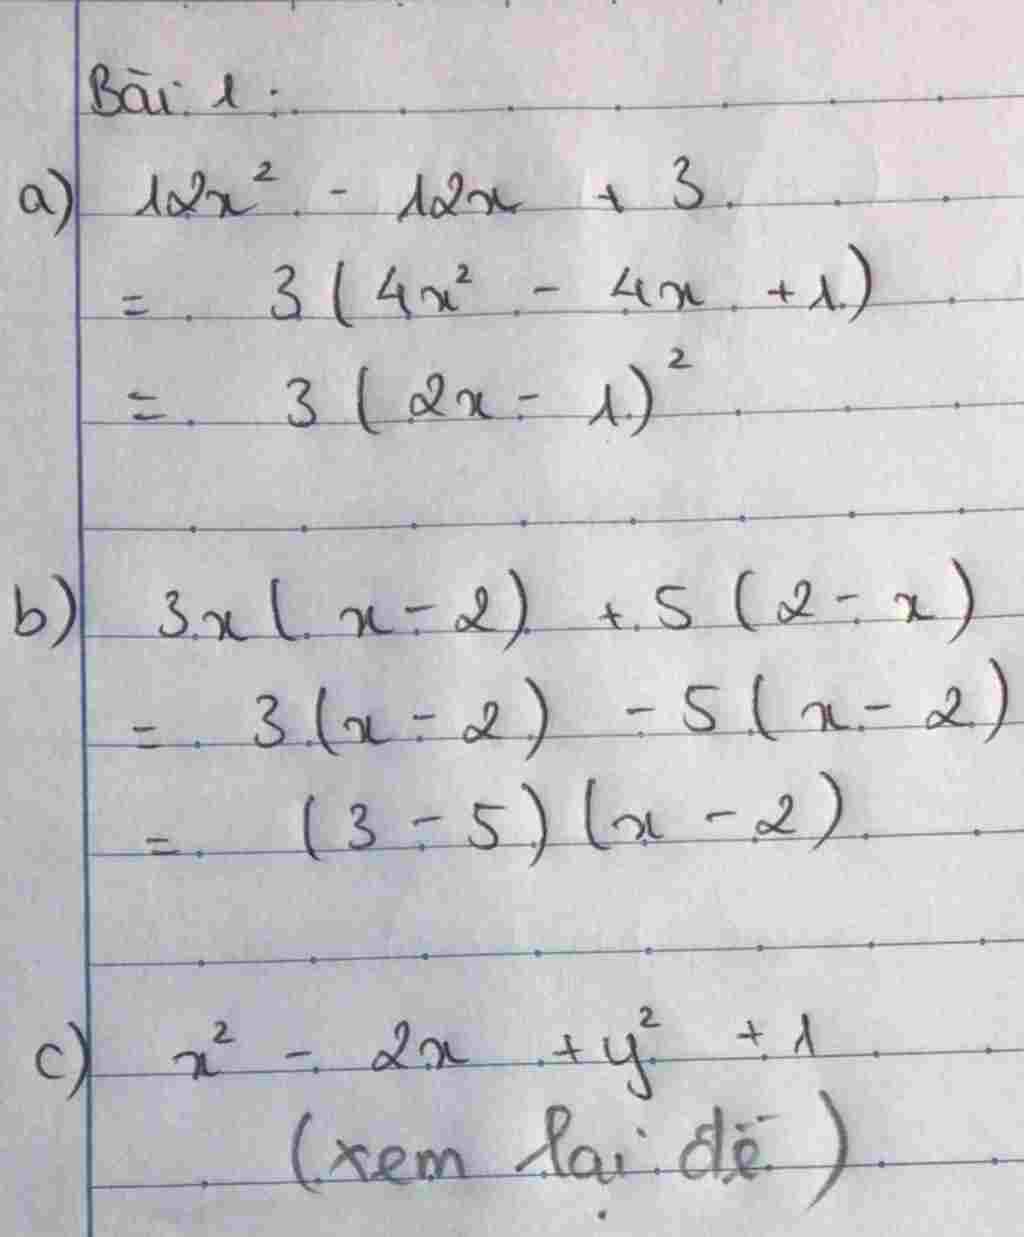 Bài 1:
a) 12x² - 12x + 3
= 3(4x² - 4x + 1)
= 3(2x - 1)²
b) 3x(x - 2) + 5(2 - x)
= 3(x - 2) - 5(x - 2)
= (3 - 5)(x - 2)
c) x² - 2x + y² + 1
(xem lại đề)